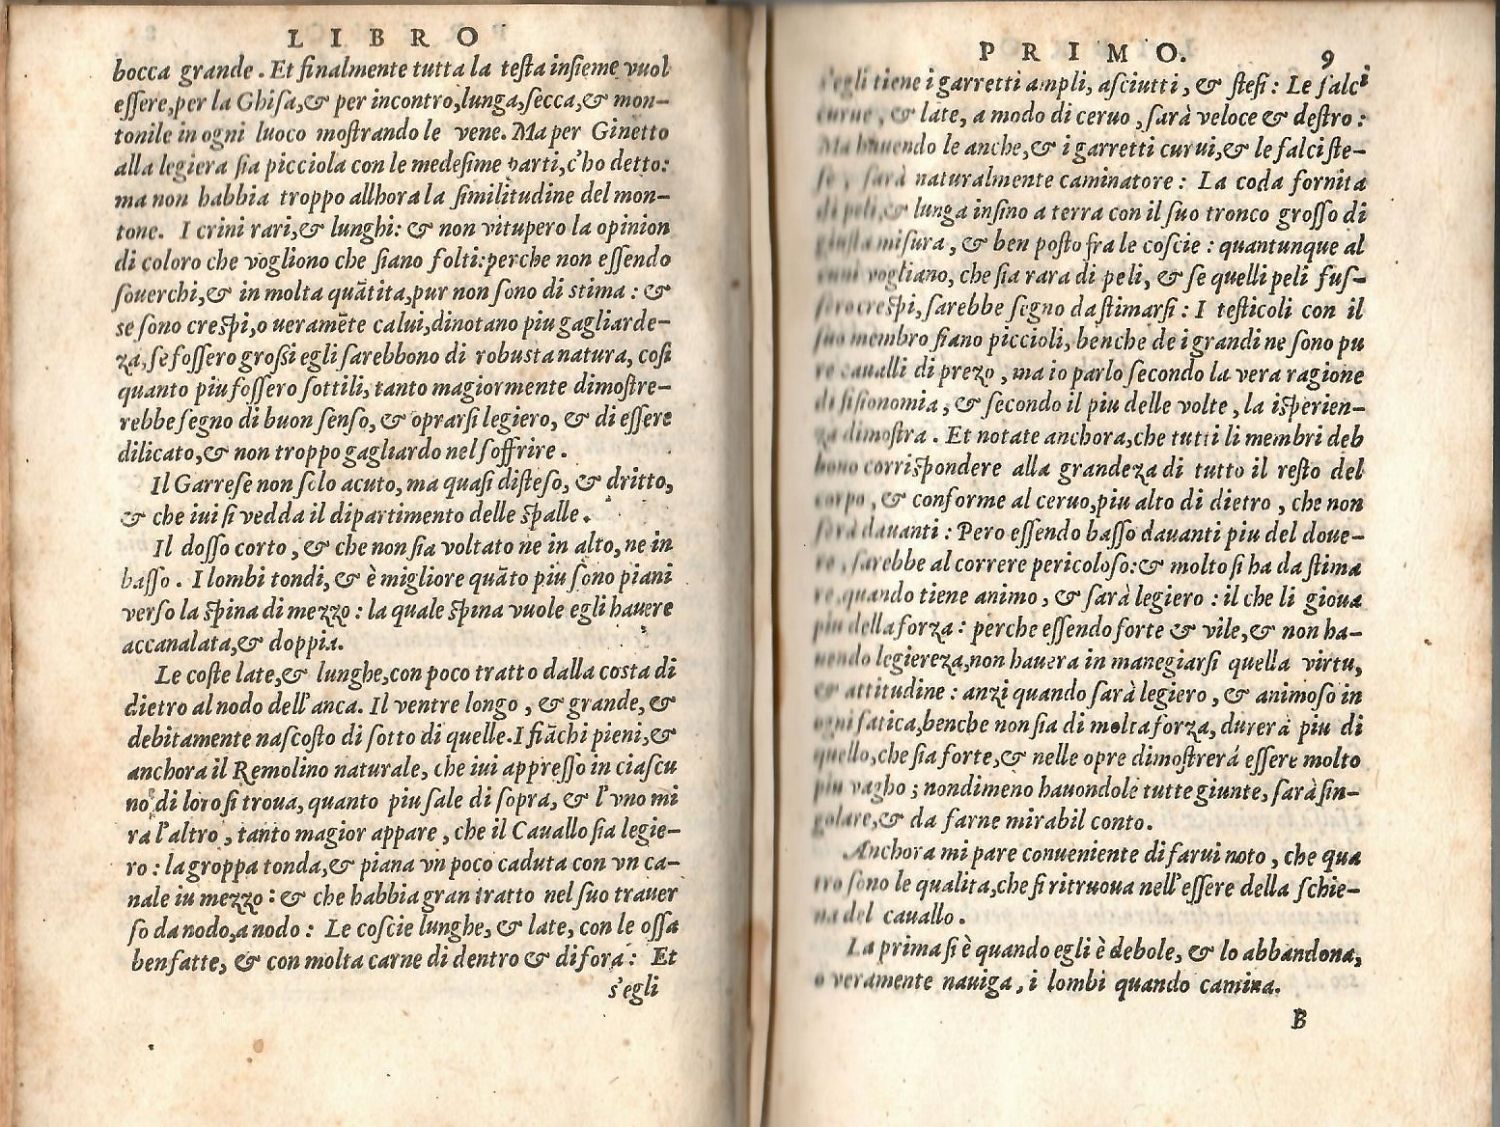 LIBRO
bocca grande. Et finalmente tutta la testa insieme vuol
essere, per la Ghisa, & per incontro, lunga, secca, & mon-
tonile in ogni luoco mostrando le vene. Ma per Ginetto
alla legiera sia picciola con le medesime parti, c'ho detto:
ma non habbia troppo allhora la similitudine del mon-
tone. I crini rari, & lunghi: & non vitupero la opinion
di coloro che vogliono che siano folti: perche non essendo
souerchi, & in molta quãtita, pur non sono di stima: &
se sono crespi, o ueramẽte calui, dinotano piu gagliarde-
za, se fossero grossi egli sarebbono di robusta natura, cosi
quanto piu fossero sottili, tanto magiormente dimostre-
rebbe segno di buon senso, & oprarsi legiero, & di essere
dilicato, & non troppo gagliardo nel soffrire.
Il Garrese non solo acuto, ma quasi disteso, & dritto,
& che iui si vedda il dipartimento delle spalle.
Il dosso corto, & che non sia voltato ne in alto, ne in
basso. I lombi tondi, & è migliore quãto piu sono piani
verso la spina di mezzo: la quale spina vuole egli hauere
accanalata, & doppia.
Le coste late, & lunghe, con poco tratto dalla costa di
dietro al nodo dell'anca. Il ventre longo, & grande, &
debitamente nascosto di sotto di quelle. I fiãchi pieni, &
anchora il Remolino naturale, che iui appresso in ciascu
no di loro si troua, quanto piu sale di sopra, & l'vno mi
ra l'altro, tanto magior appare, che il Cauallo sia legie-
ro: la groppa tonda, & piana vn poco caduta con vn ca-
nale iu mezzo: & che habbia gran tratto nel suo trauer
so da nodo, a nodo: Le coscie lunghe, & late, con le ossa
benfatte, & con molta carne di dentro & di fora: Et
s'egli
PRIMO. 9
s'egli tiene i garretti ampli, asciutti, & stesi: Le falci
curue, & late, a modo di ceruo, sarà veloce & destro:
Ma hauendo le anche, & i garretti curui, & le falci ste-
se, sarà naturalmente caminatore: La coda fornita
di peli, & lunga insino a terra con il suo tronco grosso di
giusta misura, & ben posto fra le coscie: quantunque al
cuni vogliano, che sia rara di peli, & se quelli peli fus-
sero crespi, sarebbe segno da stimarsi: I testicoli con il
suo membro siano piccioli, benche de i grandi ne sono pu
re caualli di prezo, ma io parlo secondo la vera ragione
di fisionomia, & secondo il piu delle volte, la isperien-
za dimostra. Et notate anchora, che tutti li membri deb
bono corrispondere alla grandeza di tutto il resto del
corpo, & conforme al ceruo, piu alto di dietro, che non
sera dauanti: Pero essendo basso dauanti piu del doue-
re, sarebbe al correre pericoloso: & molto si ha da stima
re, quando tiene animo, & sarà legiero: il che li gioua
piu della forza: perche essendo forte & vile, & non ha-
uendo legiereza, non hauera in manegiarsi quella virtu,
& attitudine: anzi quando sarà legiero, & animoso in
ogni fatica, benche non sia di molta forza, durerà piu di
quello, che sia forte, & nelle opre dimostrerá essere molto
piu vagho; nondimeno hauondole tutte giunte, sarà sin-
golare, & da farne mirabil conto.
Anchora mi pare conueniente di farui noto, che qua
tro sono le qualita, che si ritruoua nell'essere della schie-
na del cauallo.
La prima si è quando egli è debole, & lo abbandona,
o veramente nauiga, i lombi quando camina.
B